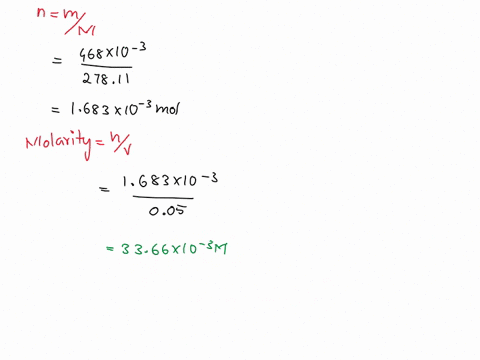 n = m/M
= 468×10⁻³ / 278.11
= 1.683×10⁻³ mol
Molarity = n/v
= 1.683×10⁻³ / 0.05
= 33.66×10⁻³ M